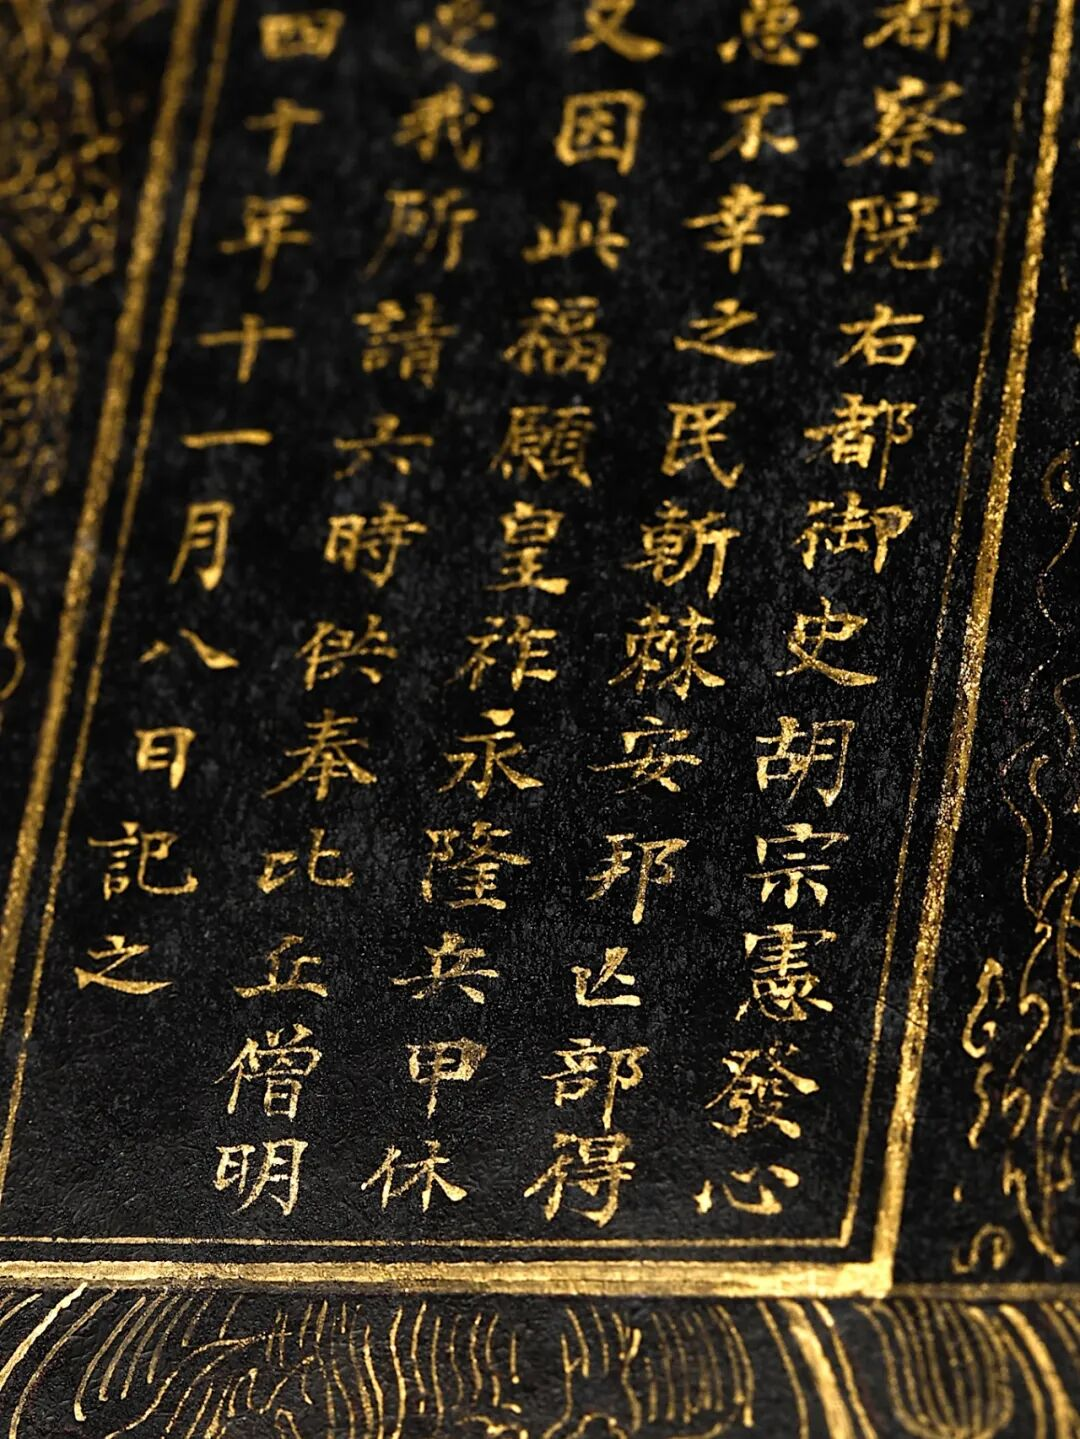 都察院右都御史胡宗憲發心
愚不幸之民斬棘安邦亡部得
又因此福願皇祚永隆兵甲休
受我所請六時供奉比丘僧明
四十年十一月八日記之